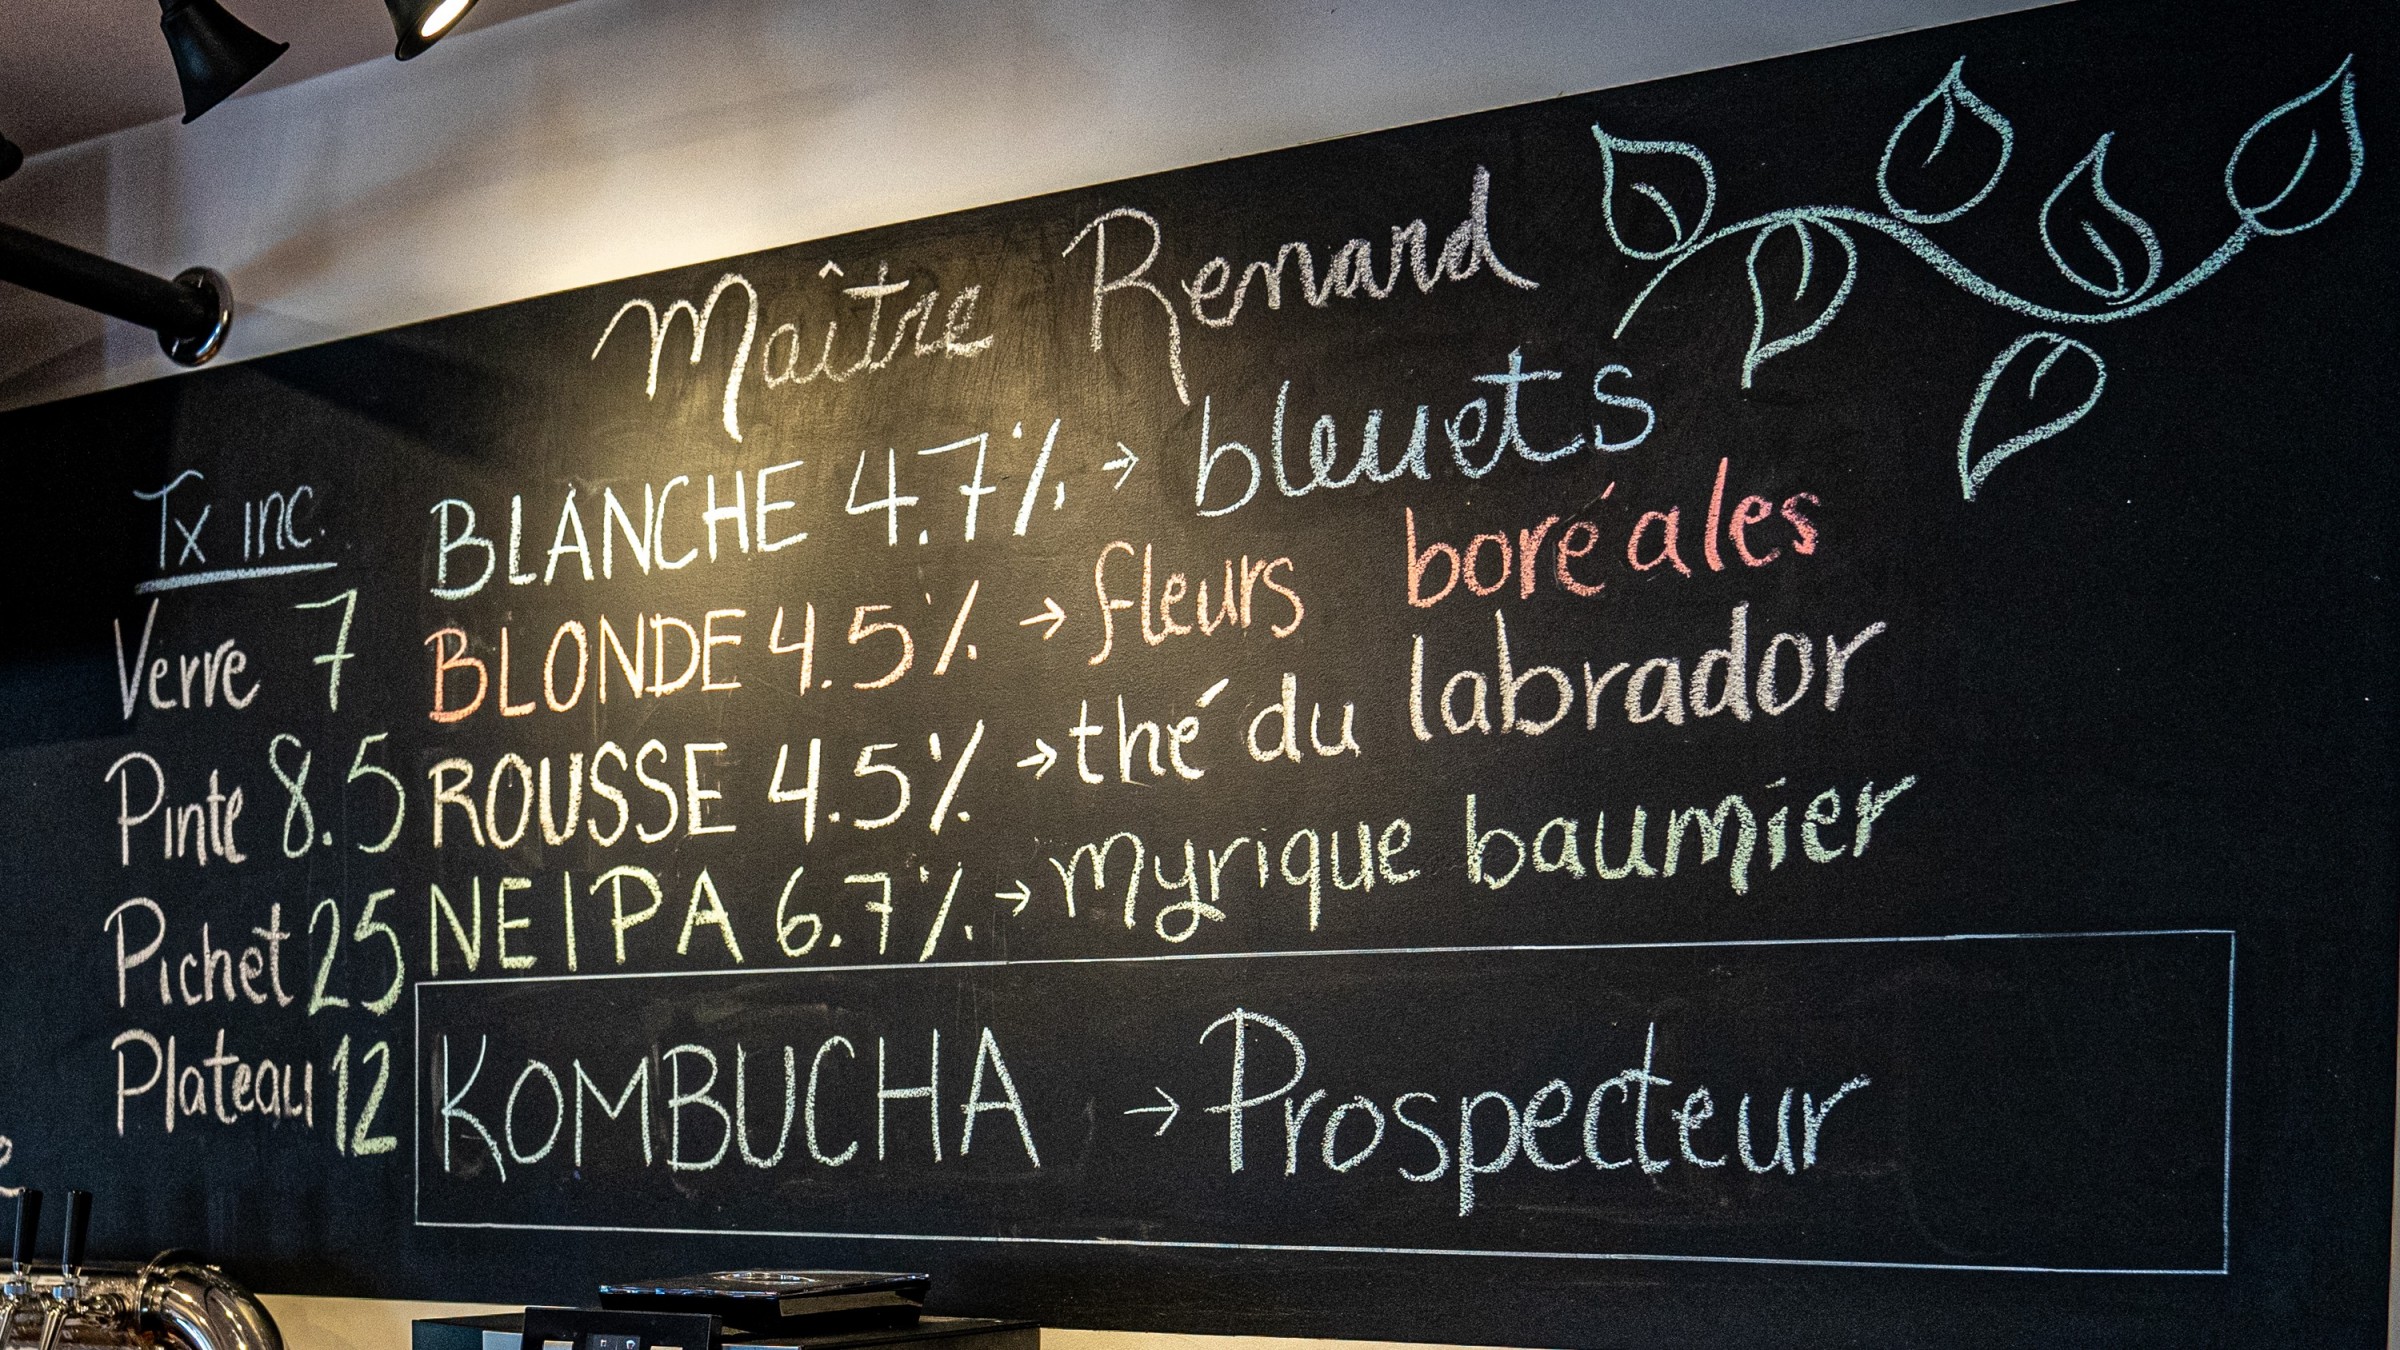 Maître Renard
Tx inc.
Verre 7
Pinte 8.5
Pichet 25
Plateau 12
BLANCHE 4.7% → bleuets
BLONDE 4.5% → fleurs boréales
ROUSSE 4.5% → thé du labrador
NEIPA 6.7% → myrique baumier
KOMBUCHA → Prospecteur